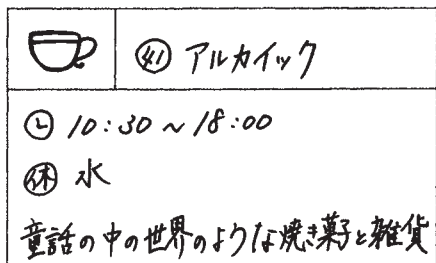 ㊶ アルカイック
10:30~18:00
㊡ 水
童話の中の世界のような焼き菓子と雑貨